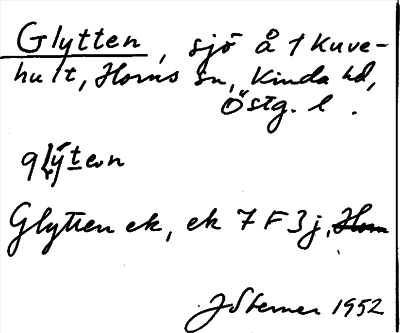 Glytten, sjö å 1 Kuve-
hult, Horns sn, Kinda hd,
Östg. l.
Glytten ek, ek 7 F 3 j,
JSterner 1952